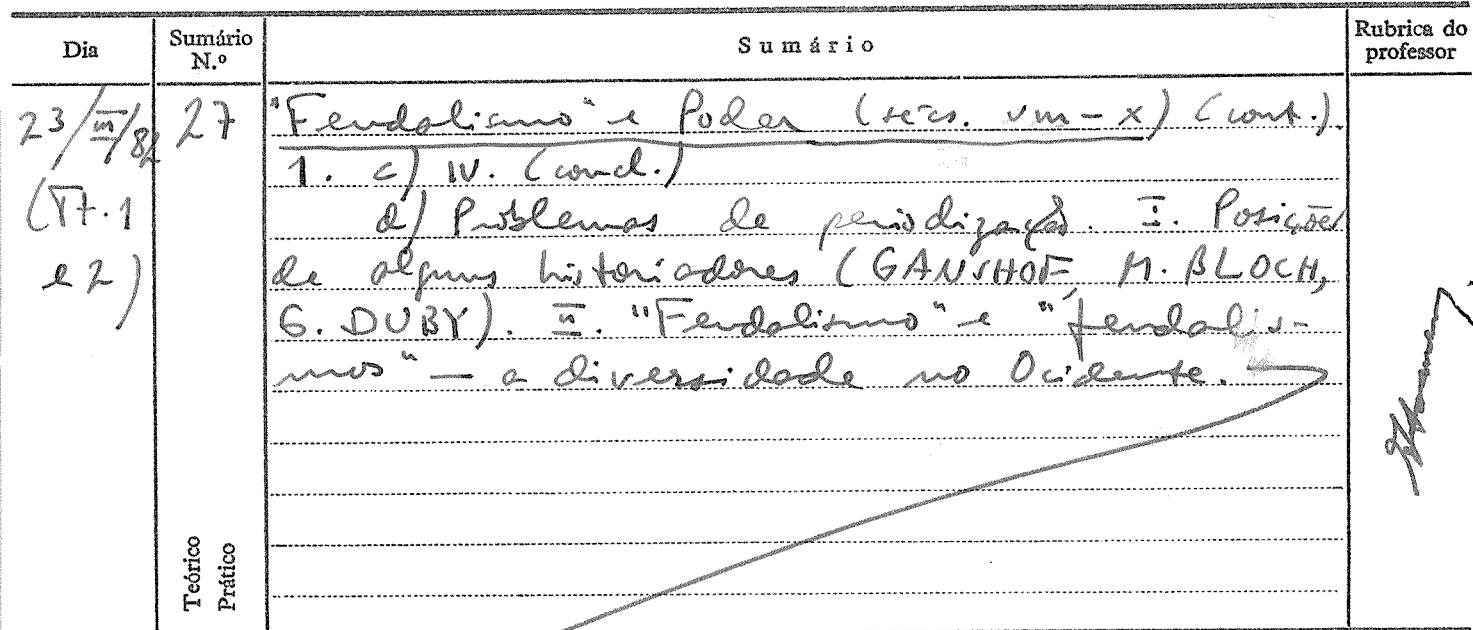 Dia
Sumário N.º
Sumário
Rubrica do professor
23/III/82
27
"Feudalismo" e Poder (sécs. VIII-X) (cont.).
1. c) IV. (concl.)
(T7.1 d) Problemas de periodização. I. Posições
e 2) de alguns historiadores (GANSHOF, M. BLOCH,
G. DUBY). II. "Feudalismo" e "feudalis-
mos" — a diversidade no Ocidente.
Teórico
Prático